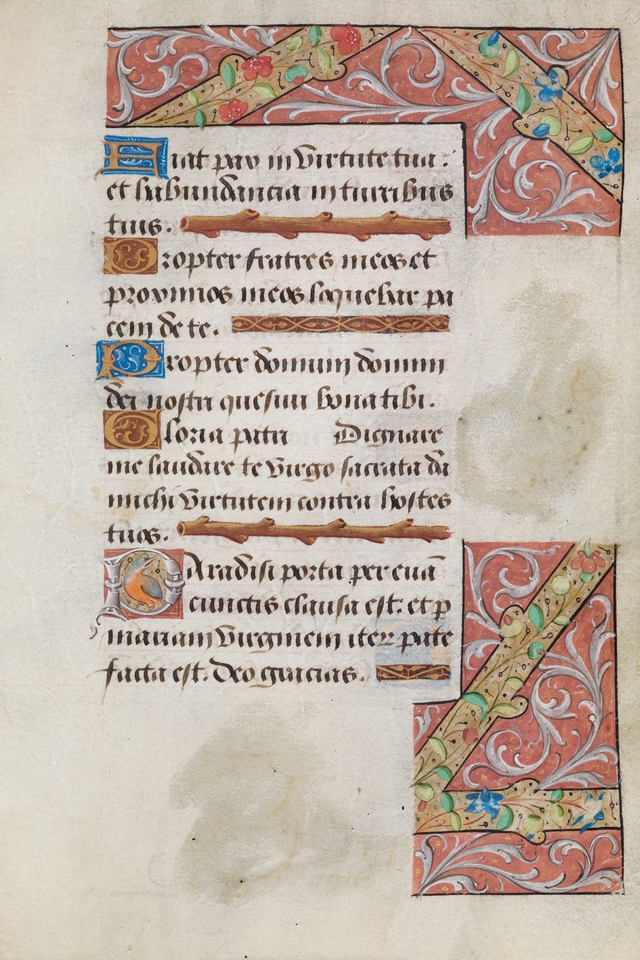 Fiat pax in virtute tua:
et habundancia in turribus
tuis.
Propter fratres meos et
proximos meos loquebar pa
cem de te.
Propter domum domini
dei nostri quesivi bona tibi.
Gloria patri Dignare
me laudare te virgo sacrata da
michi virtutem contra hostes
tuos.
Paradisi porta per evā
cunctis clausa est. et p
mariam virginem iter pate
facta est. Deo gracias.